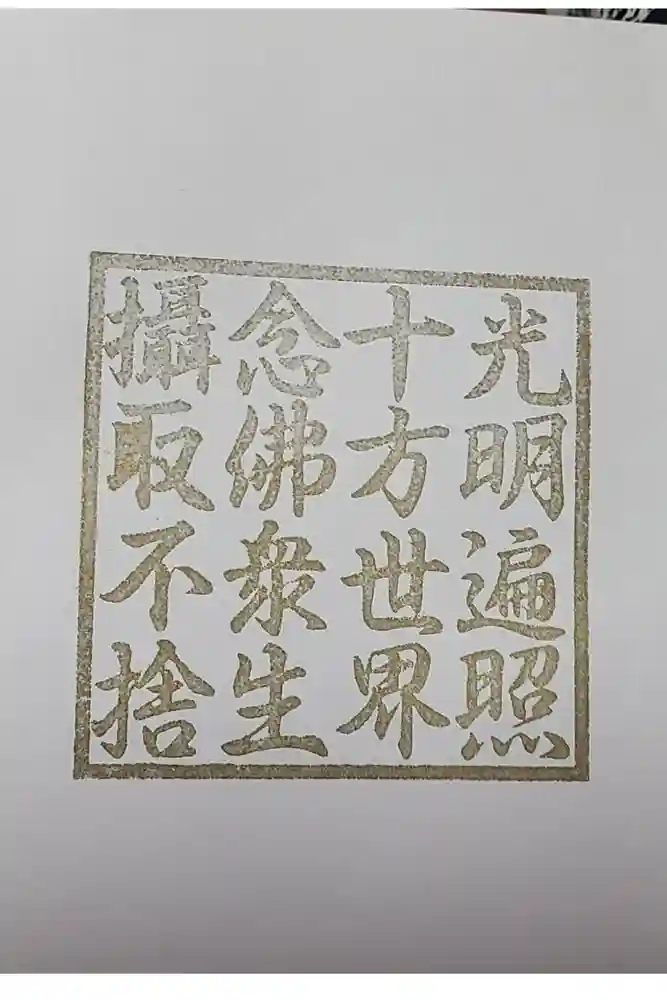 光明遍照
十方世界
念佛衆生
攝取不捨